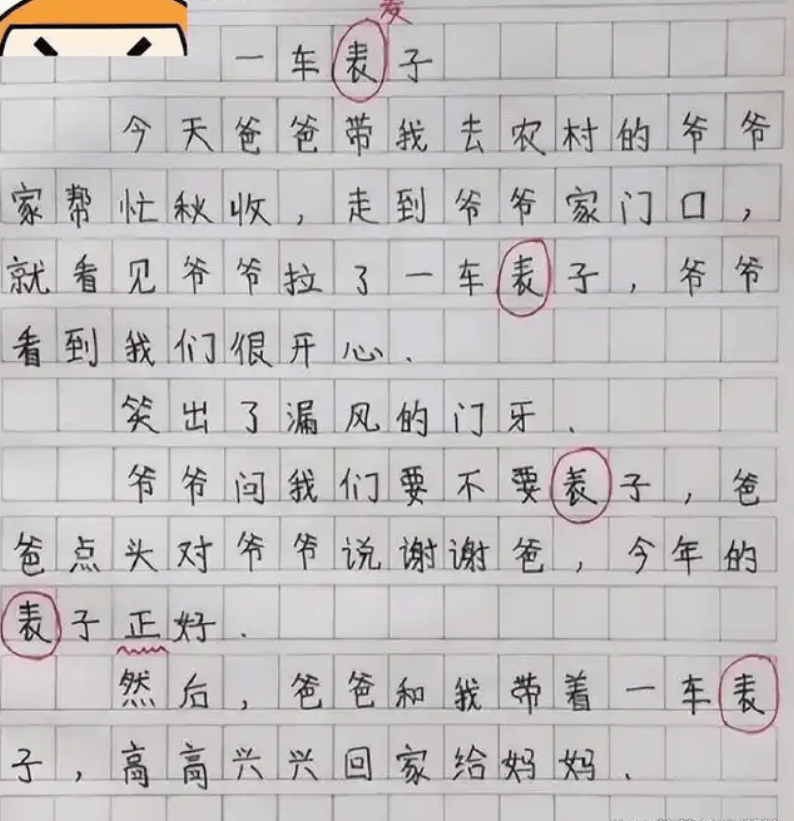 麦
一车表子
今天爸爸带我去农村的爷爷
家帮忙秋收，走到爷爷家门口，
就看见爷爷拉了一车表子，爷爷
看到我们很开心.
笑出了漏风的门牙.
爷爷问我们要不要表子，爸
爸点头对爷爷说谢谢爸，今年的
表子正好.
然后，爸爸和我带着一车表
子，高高兴兴回家给妈妈.